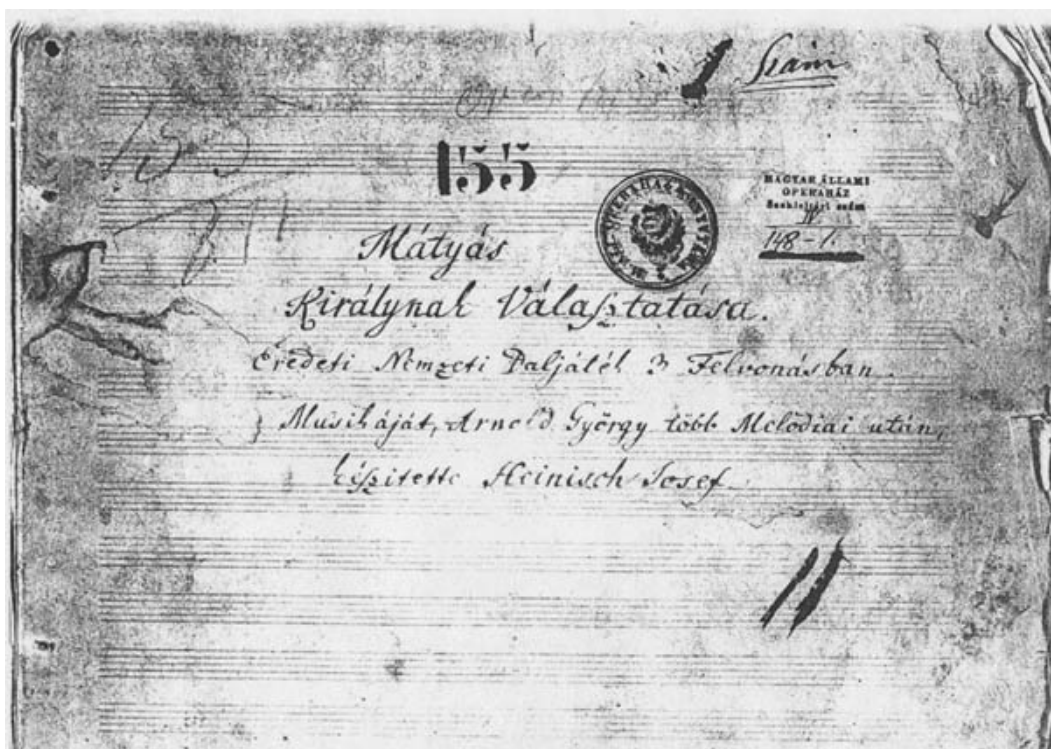 Szám
155
155
MAGYAR ÁLLAMI
OPERAHÁZ
IV
148-1.
Mátyás
Királynak Választatása.
Eredeti Nemzeti Daljáték 3 Felvonásban.
Musikáját, Arnold György több Melodiai után,
készitette Heinisch Josef.